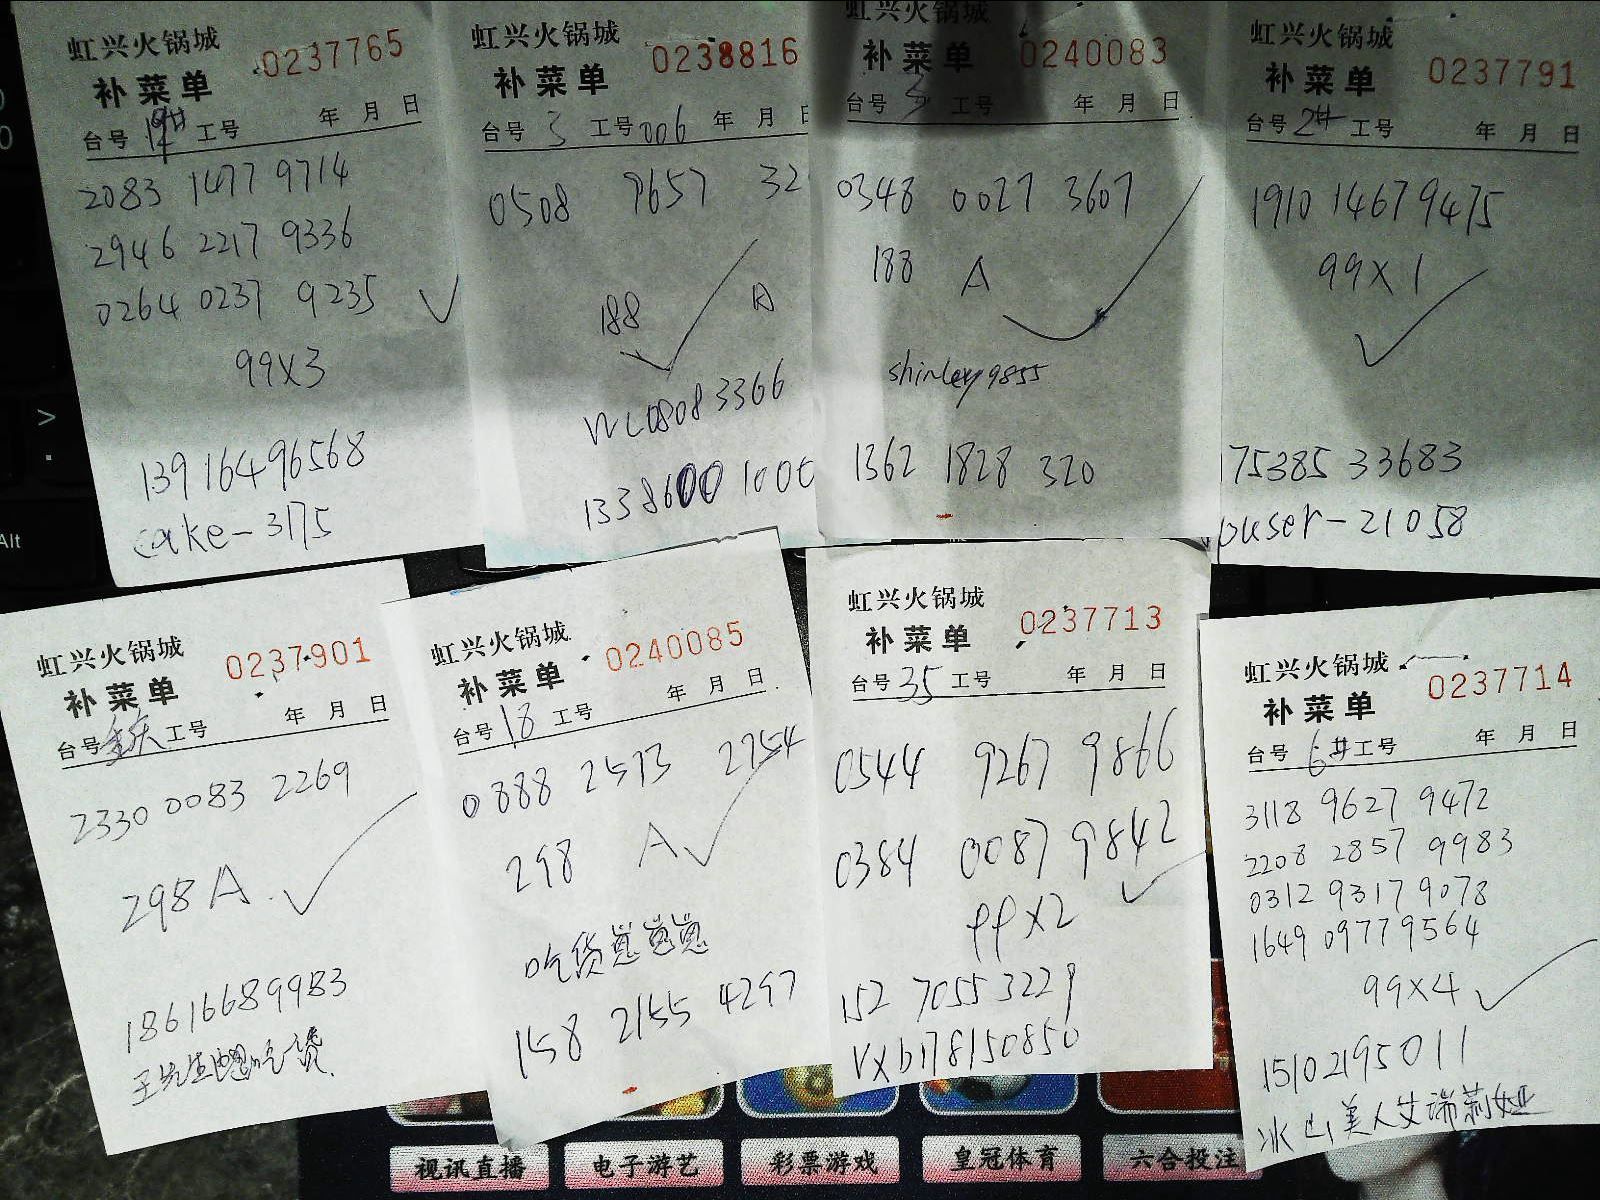 虹兴火锅城 0237765
补菜单
台号 19# 工号 年 月 日
2083 1477 9714
2946 2217 9336
0264 0237 9235
99X3
13916496568
cake-3175
虹兴火锅城 0238816
补菜单
台号 3 工号 006 年 月 日
0508 9657 32
188 A
WL08083366
13386001000
虹兴火锅城
补菜单 0240083
台号 3 工号 年 月 日
0348 0027 3607
188 A
shinley9855
1362 1828 320
虹兴火锅城
补菜单 0237791
台号 2# 工号 年 月 日
1910 1467 9475
99X1
175385 33683
puser-21058
虹兴火锅城 0237901
补菜单
台号 重庆 工号 年 月 日
2330 0083 2269
298A
18616689983
虹兴火锅城 0240085
补菜单
台号 18 工号 年 月 日
0888 2573 2754
298 A
吃货崽崽崽
158 2155 4297
虹兴火锅城 0237713
补菜单
台号 35 工号 年 月 日
0544 9267 9866
0384 0087 9842
99X2
152 7055 3229
VXb178150850
虹兴火锅城 0237714
补菜单
台号 6# 工号 年 月 日
3118 9627 9472
2208 2857 9983
0312 9317 9078
1649 0977 9564
99X4
15102195011
冰山美人艾瑞莉娅
视讯直播 电子游艺 彩票游戏 皇冠体育 六合投注
Alt